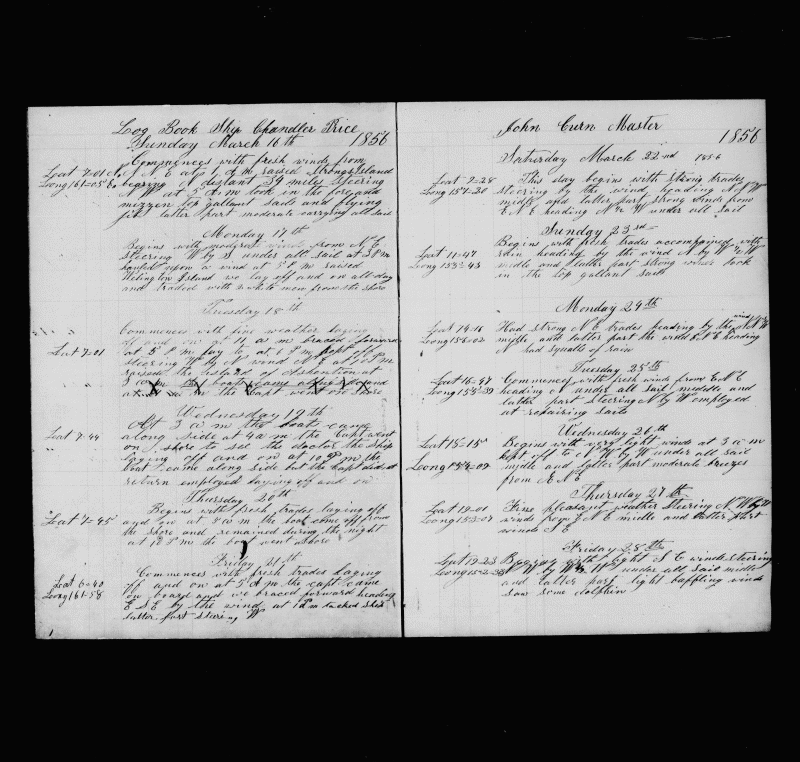 Log Book Ship Chandler Price
Sunday March 16th 1856
Commences with fresh winds from
Lat 7-01 N. N E at 1 P M raised Strongs Island
Long 161-05 E. bearing distant 39 miles steering
at 5 A m took in the fore and
mizzen top gallant sails and flying
jib latter part moderate carrying all sail
Monday 17th
Begins with moderate winds from N. E
steering W by S under all sail at 3 P m
hauled upon a wind at 5 P m raised
Island we lay off and on all day
and traded with white men from the shore
Tuesday 18th
Commences with fine weather laying
off and on at 11 a m braced forward
Lat 7-01 at 5 P m at 6 P m kept off
steering W by wind N E at 10 P m
raised the Island of at
3 a m the boat came
at the Capt went on shore
Wednesday 19th
At 3 a m the boat came
along side at 4 a m the Capt went
Lat 7-44 on shore to see the doctor the ship
laying off and on at 10 P m the
boat came along side but the Capt did not
return employed laying off and on
Thursday 20th
Begins with fresh trades laying off
Lat 7-45 and on at 8 a m the boat came off from
the shore and remained during the night
at 12 P m the boat went ashore
Friday 21st
Commences with fresh trades laying
Lat 6-40 off and on at 5 a m the capt came
Long 161-58 on board and we braced forward heading
E S E by the wind at 1 P m tacked ship
latter part steering W
John Curn Master
1856
Saturday March 22nd 1856
Lat 9-28 This day begins with strong trades
Long 157-20 steering by the wind heading N N W
midle and latter part strong winds from
E N E heading N & W under all sail
Sunday 23rd
Begins with fresh trades accompanied with
Lat 11-47 rain heading by the wind N by W
Long 153-43 midle and latter part strong winds took
in the top gallant sails
Monday 24th
Lat 14-16 Had strong N E trades heading by the wind N N W
Long 154-02 midle and latter part the wind E N E heading
N had squalls of rain
Tuesday 25th
Lat 16-47 Commences with fresh winds from E N E
Long 153-39 heading N under all sail middle and
latter part steering N by W employed
at repairing sails
Wednesday 26th
Lat 18-15 Begins with very light winds at 3 a m
kept off to N W by W under all sail
Long midle and latter part moderate breezes
from E N E
Thursday 27th
Lat 19-01 Fine pleasant weather steering N. W by W
Long 153-07 winds from E N E midle and latter part
winds S E
Friday 28th
Lat 19-23 Begins with light S E winds steering
N W by W under all sail midle
and latter part light baffling winds
saw some dolphin